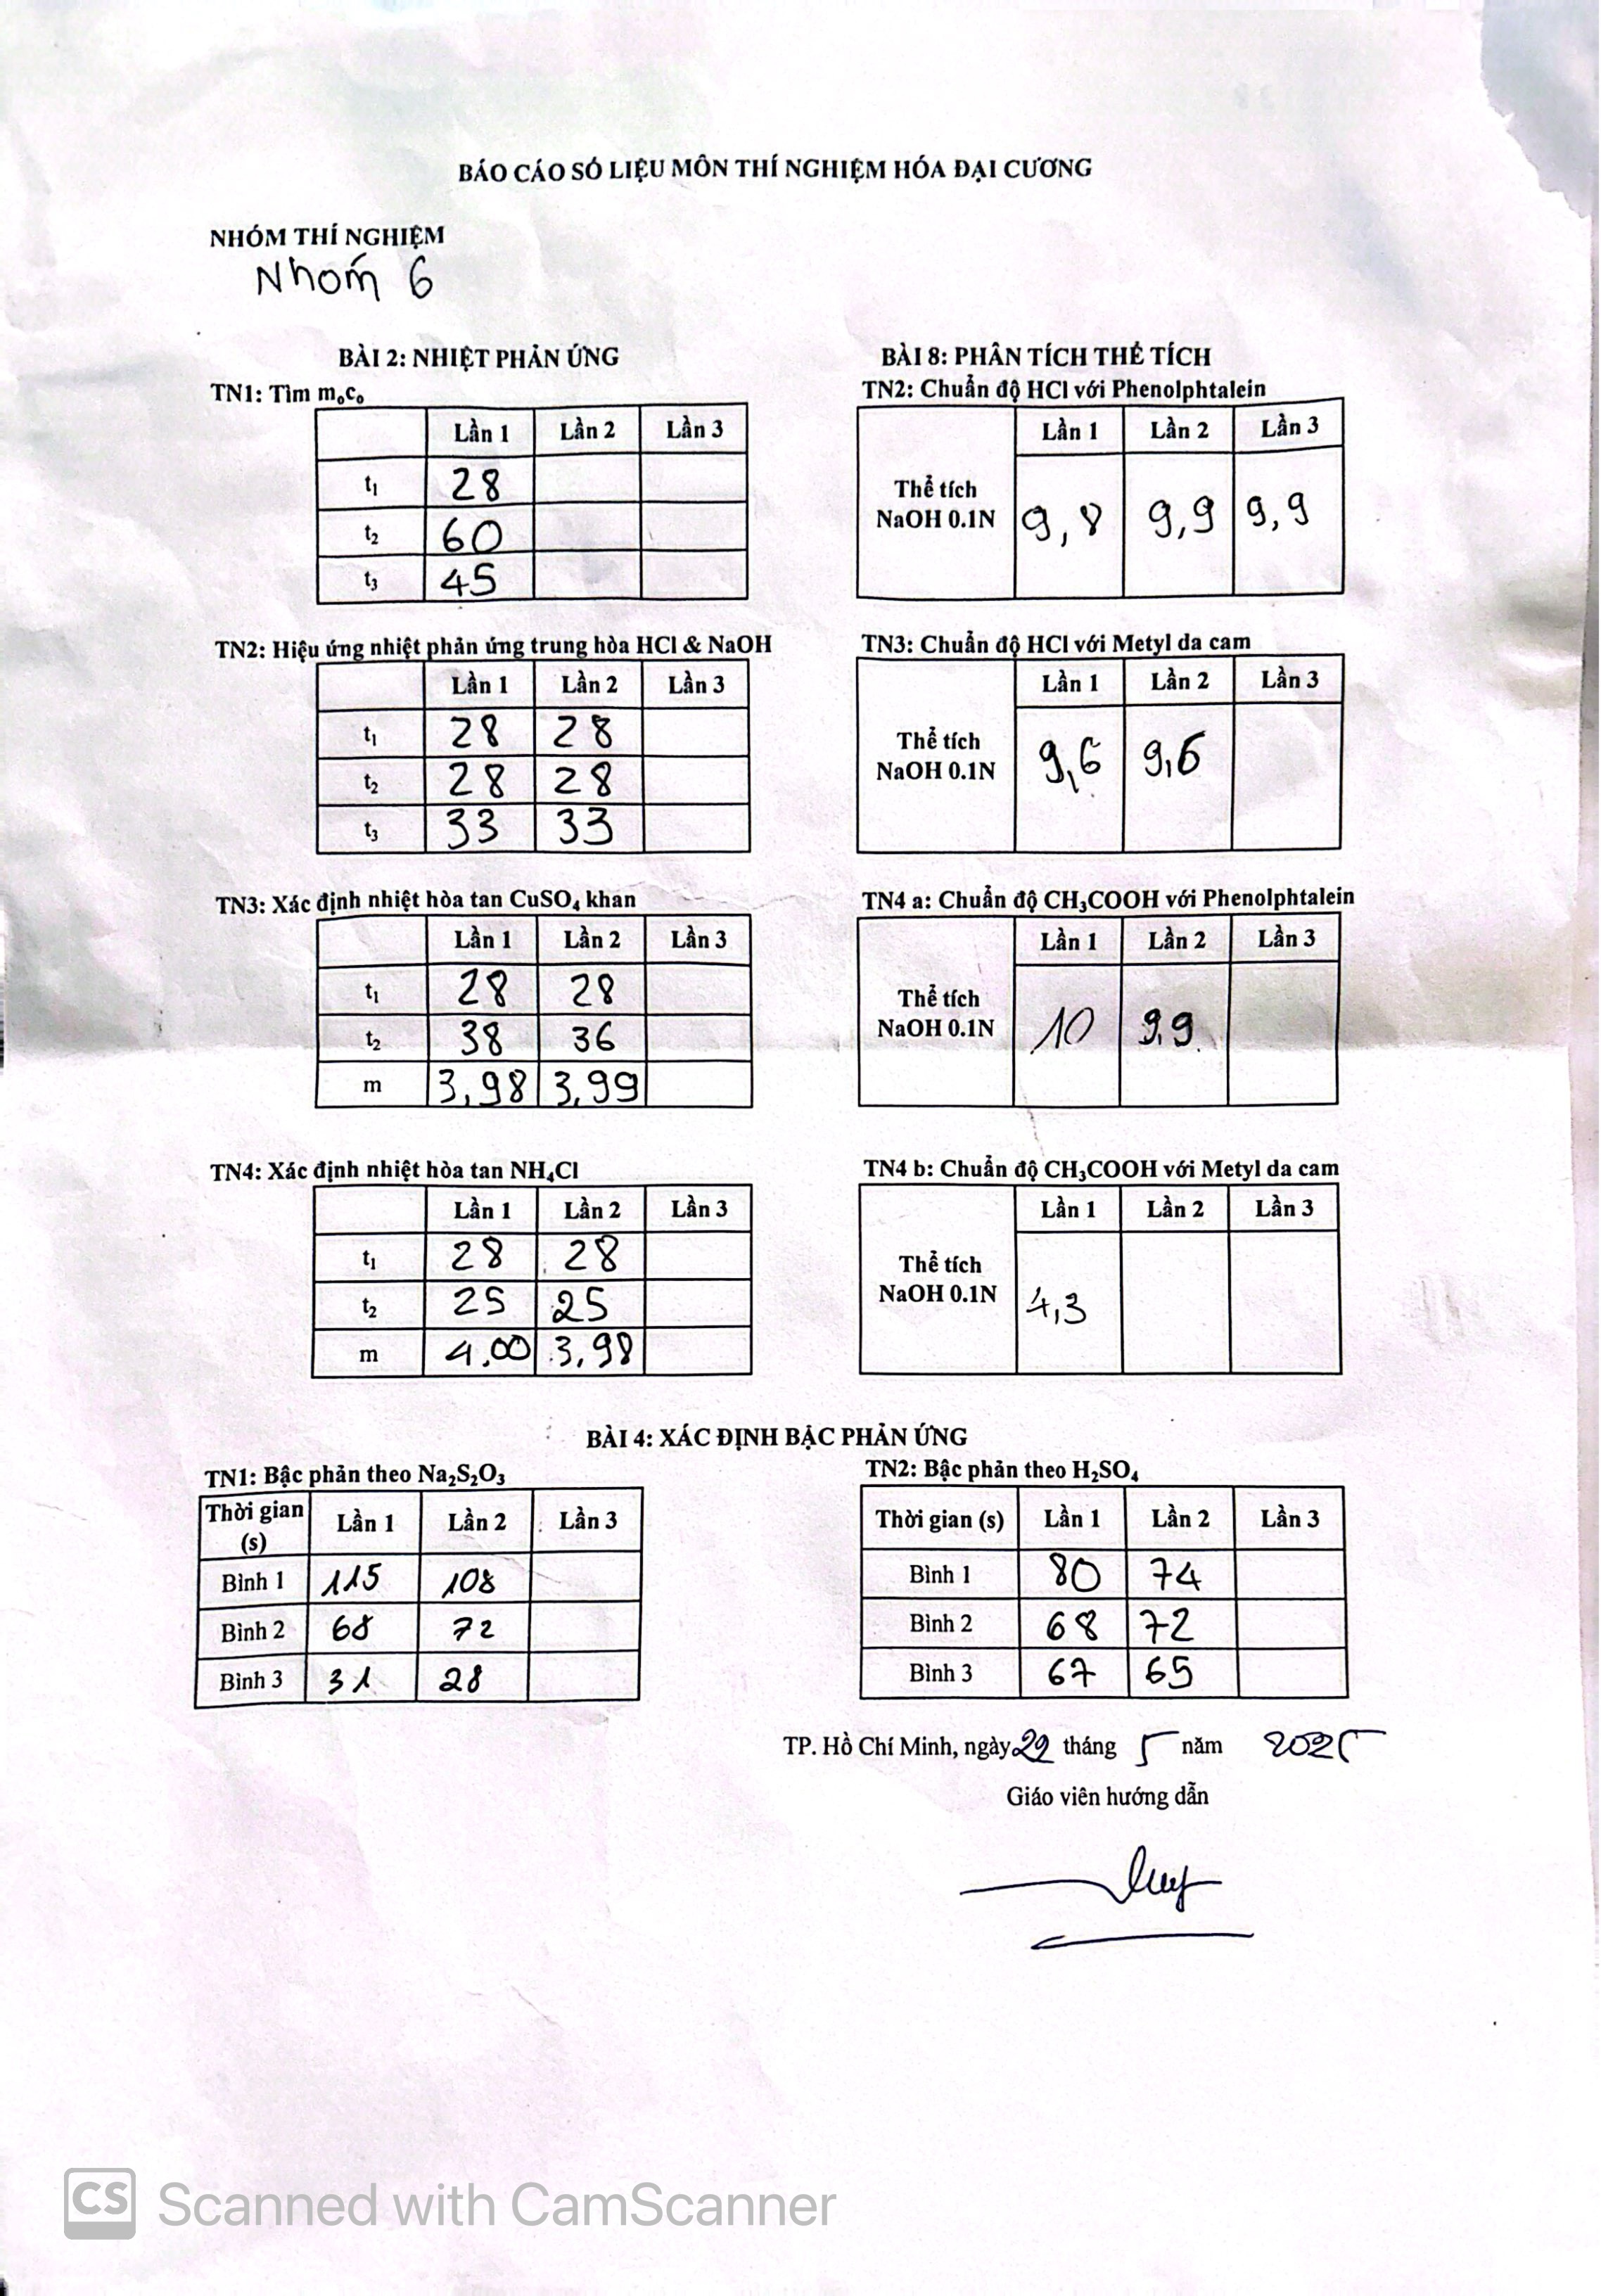 BÁO CÁO SỐ LIỆU MÔN THÍ NGHIỆM HÓA ĐẠI CƯƠNG
NHÓM THÍ NGHIỆM
Nhóm 6
BÀI 2: NHIỆT PHẢN ỨNG
TN1: Tìm m₀c₀
Lần 1 Lần 2 Lần 3
t₁ 28
t₂ 60
t₃ 45
TN2: Hiệu ứng nhiệt phản ứng trung hòa HCl & NaOH
Lần 1 Lần 2 Lần 3
t₁ 28 28
t₂ 28 28
t₃ 33 33
TN3: Xác định nhiệt hòa tan CuSO₄ khan
Lần 1 Lần 2 Lần 3
t₁ 28 28
t₂ 38 36
m 3,98 3,99
TN4: Xác định nhiệt hòa tan NH₄Cl
Lần 1 Lần 2 Lần 3
t₁ 28 28
t₂ 25 25
m 4,00 3,98
BÀI 8: PHÂN TÍCH THỂ TÍCH
TN2: Chuẩn độ HCl với Phenolphtalein
Lần 1 Lần 2 Lần 3
Thể tích
NaOH 0.1N 9,8 9,9 9,9
TN3: Chuẩn độ HCl với Metyl da cam
Lần 1 Lần 2 Lần 3
Thể tích
NaOH 0.1N 9,6 9,6
TN4 a: Chuẩn độ CH₃COOH với Phenolphtalein
Lần 1 Lần 2 Lần 3
Thể tích
NaOH 0.1N 10 9,9
TN4 b: Chuẩn độ CH₃COOH với Metyl da cam
Lần 1 Lần 2 Lần 3
Thể tích
NaOH 0.1N 4,3
BÀI 4: XÁC ĐỊNH BẬC PHẢN ỨNG
TN1: Bậc phản theo Na₂S₂O₃
Thời gian
(s) Lần 1 Lần 2 Lần 3
Bình 1 115 108
Bình 2 68 72
Bình 3 31 28
TN2: Bậc phản theo H₂SO₄
Thời gian (s) Lần 1 Lần 2 Lần 3
Bình 1 80 74
Bình 2 68 72
Bình 3 67 65
TP. Hồ Chí Minh, ngày 22 tháng 5 năm 2025
Giáo viên hướng dẫn
CS Scanned with CamScanner